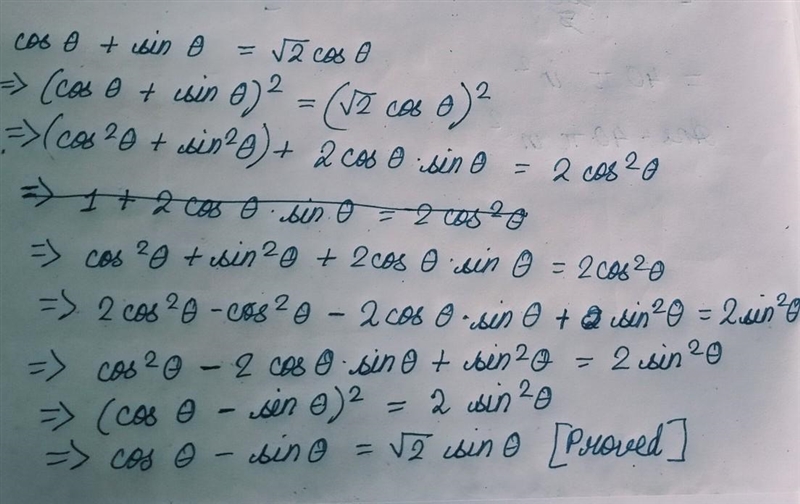 cos θ + sin θ = √2 cos θ
=> (cos θ + sin θ)² = (√2 cos θ)²
=> (cos²θ + sin²θ) + 2 cos θ · sin θ = 2 cos²θ
=> 1 + 2 cos θ · sin θ = 2 cos²θ
=> cos²θ + sin²θ + 2cos θ · sin θ = 2cos²θ
=> 2cos²θ - cos²θ - 2cos θ · sin θ + sin²θ = 2sin²θ
=> cos²θ - 2 cos θ · sin θ + sin²θ = 2 sin²θ
=> (cos θ - sin θ)² = 2 sin²θ
=> cos θ - sin θ = √2 sin θ [Proved]